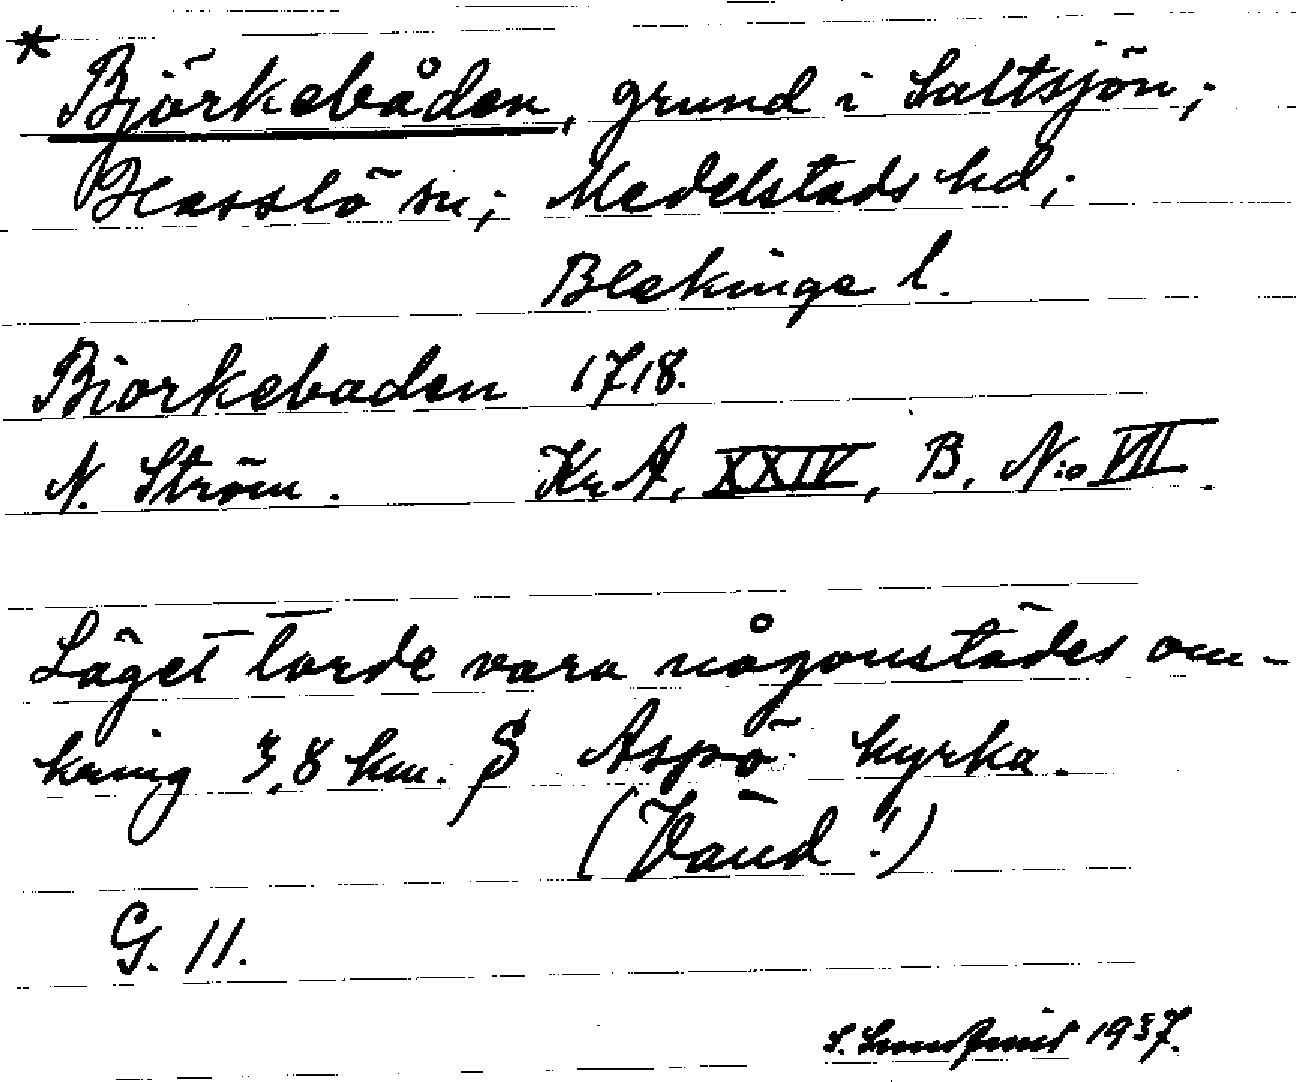 * Björkebåden, grund i Saltsjön;
Hasslö sn; Medelstads hd;
Blekinge l.
Biorkebaden 1718.
N. Ström. Kr A, XXIV, B, N:o VII.
Läget torde vara någonstädes om-
kring 3,8 km. S Aspö kyrka.
(Vänd!)
G. 11.
S. Lundquist 1937.